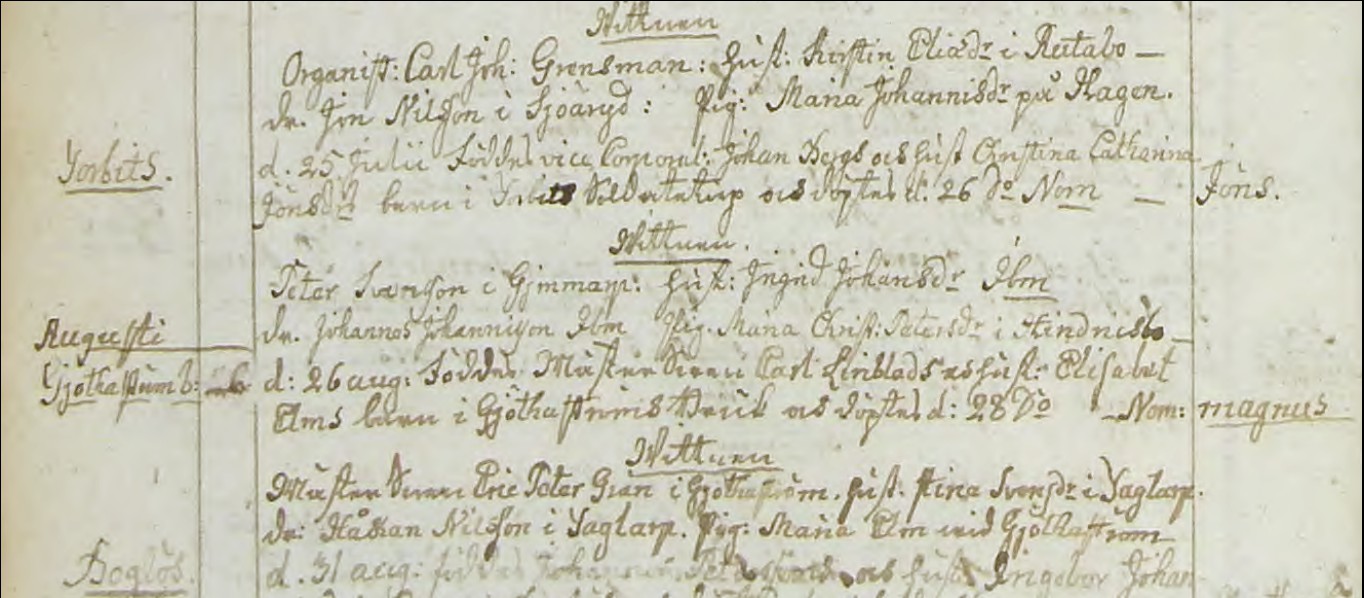 Wittnen
Organist: Carl Joh: Grensman: Hust: Kirstin Eliædr i Rutabo —
dr. Jon Nilsson i Sjöaryd: Pig: Maria Johannisdr på Hagen.
Yxbits. d. 25 Julii Föddes vice Corporal: Johan Bergs och Hust Christina Catharina
Jönsdrs barn i Soldatetorp och döptes d. 26 Do Nom — Jöns.
Wittnen.
Peter Svenson i Gimmarp: Hust: Ingrid Johansdr Ibm
Augusti dr. Johannes Johannisson Ibm Pig. Maria Christ: Petersdr i
Gjöthaström b: d: 26 aug: Föddes Mäster Carl Linblads och Hust: Elisabet
Elms barn i Gjöthaströms Bruk och döptes d: 28 Do — Nom: magnus
Wittnen
Mäster Eric Peter Gran i Gjöthaström. Hust. Stina Svensdr i Yaglarp.
dr: Håkan Nilsson i Yaglarp. Pig: Maria Elm wid Gjöthaström
Boglös. d. 31 aug: föddes och Hust Ingebor Johan